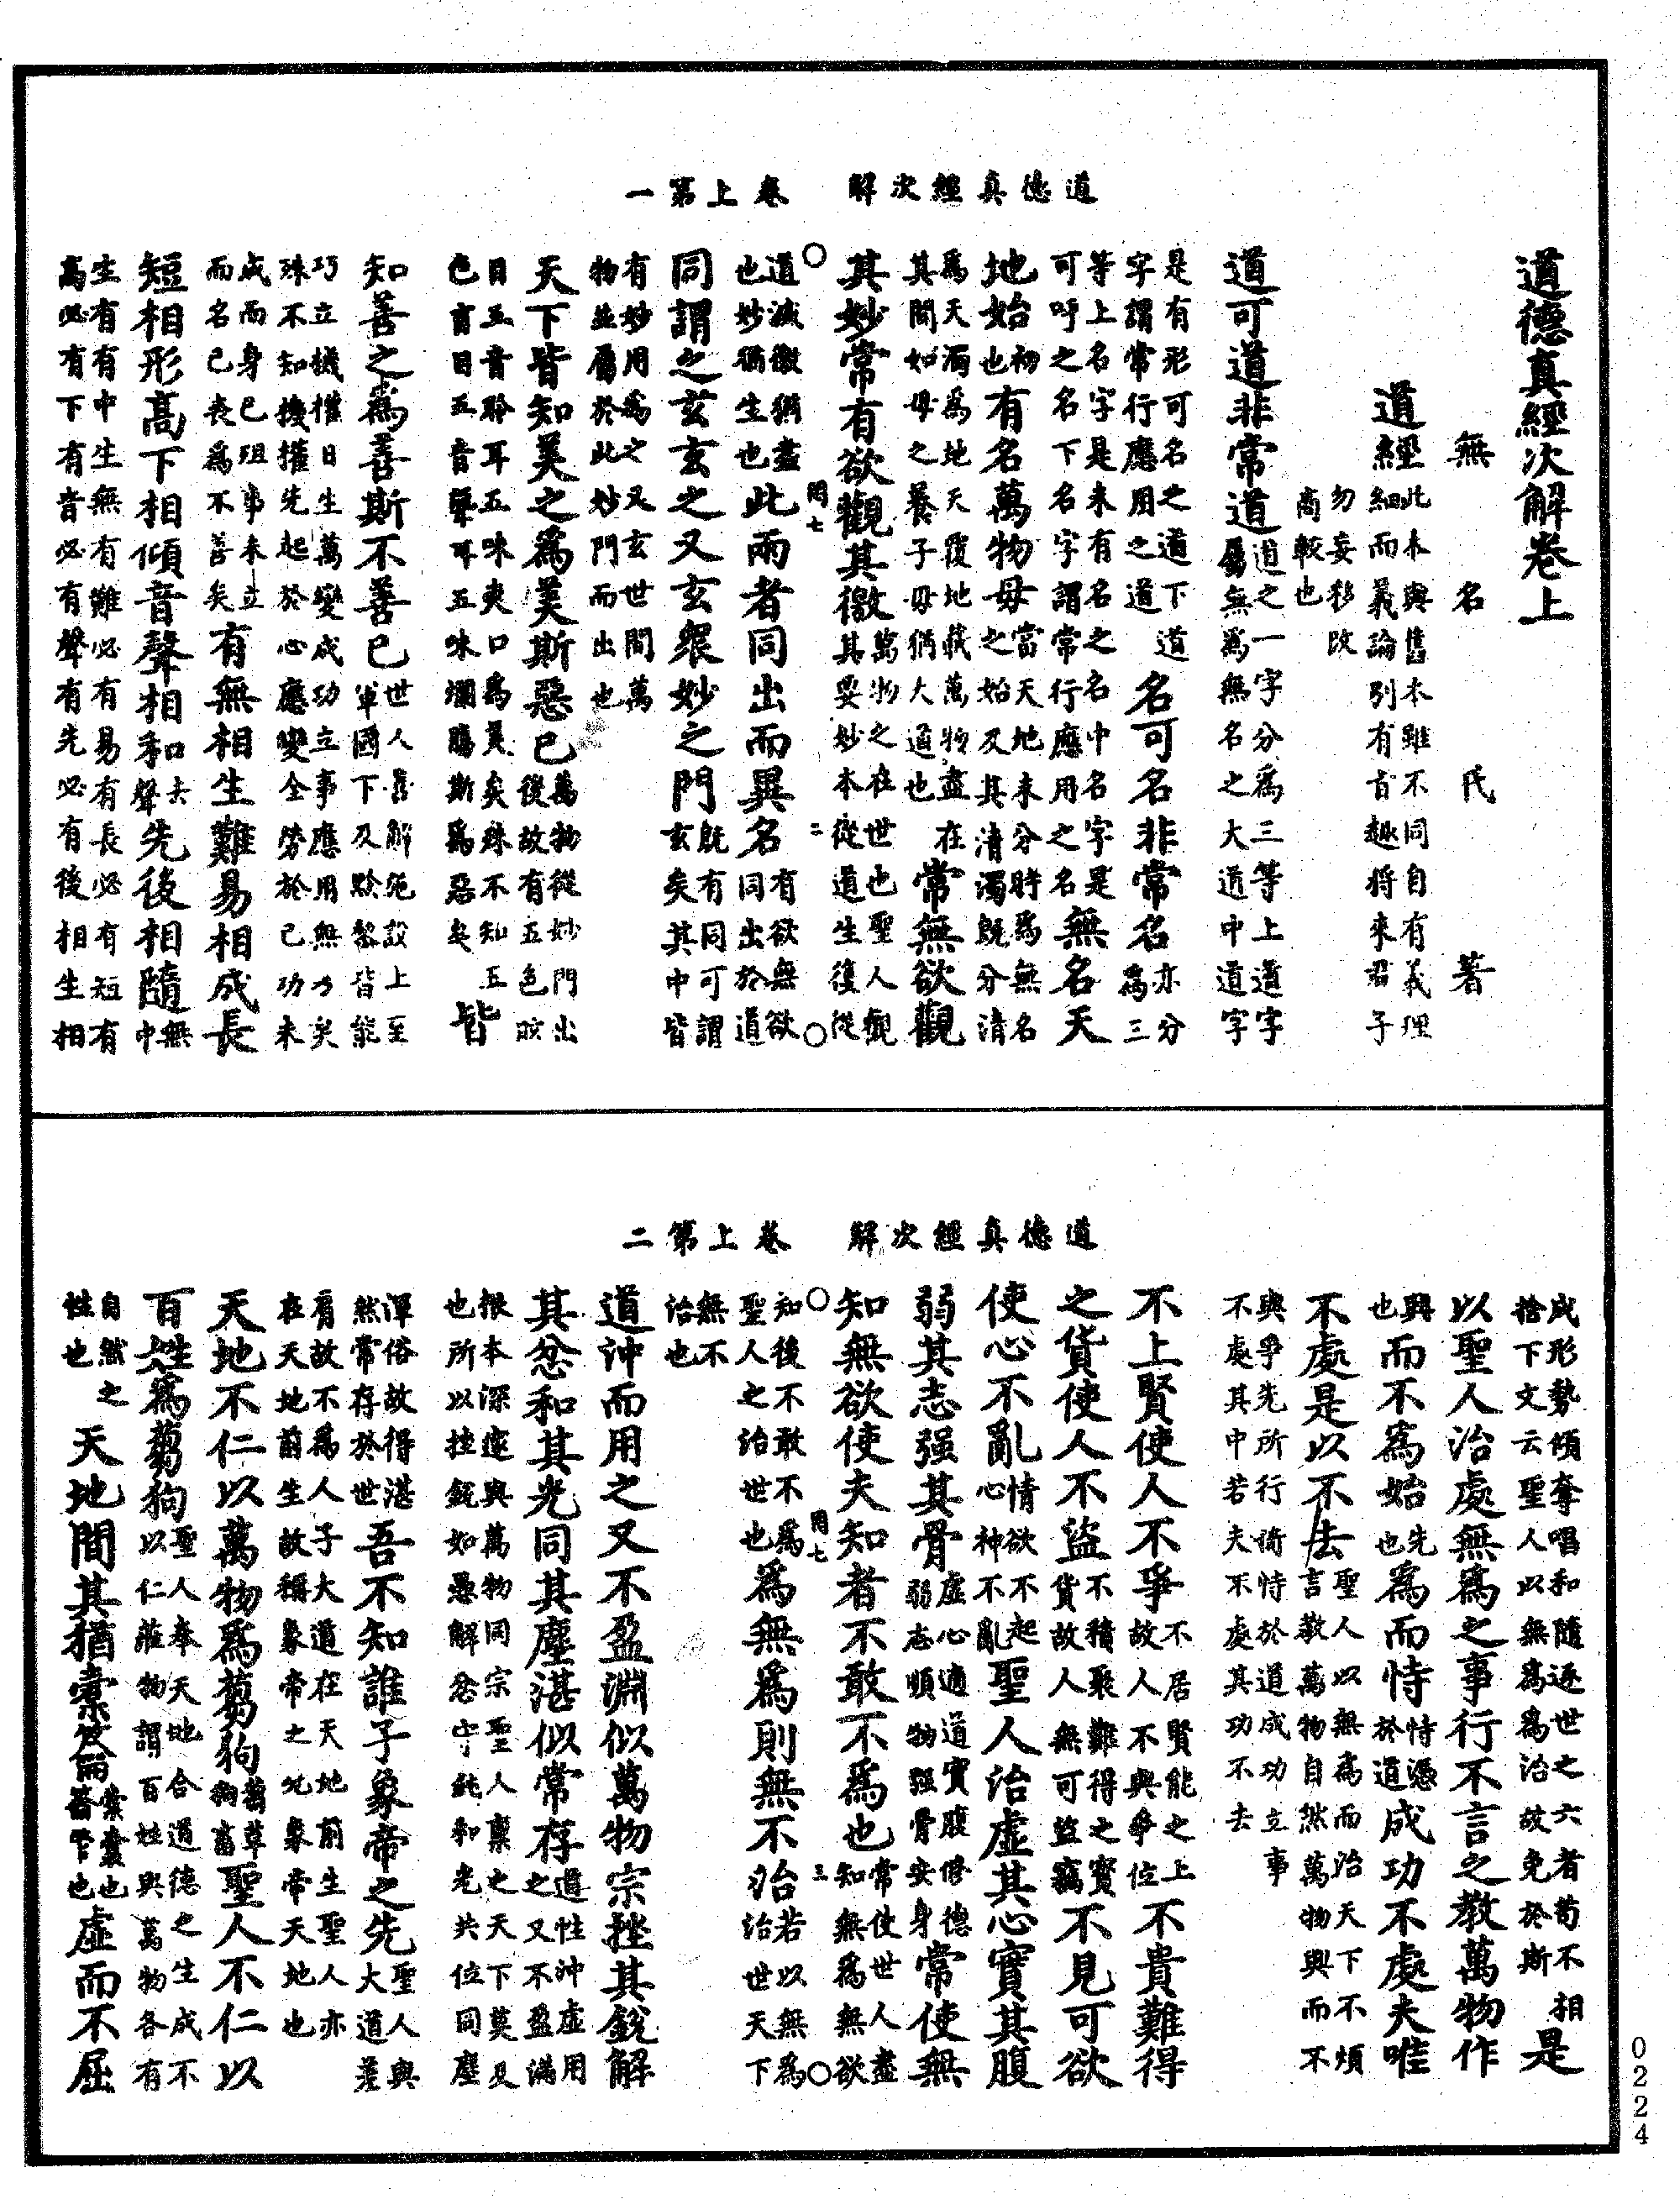 道德真經次解　卷上第一
道德真經次解卷上
無名氏著
道經
此本與舊本雖不同自有義理
細而義論別有旨趣將來君子
勿妄移改
商較也
道可道非常道
道之一字分為三等上道字
屬無為無名之大道中道字
是有形可名之道下道
字謂常行應用之道
名可名非常名
亦分
為三
等上名字是未有名之名中名字是
可呼之名下名字謂常行應用之名
無名天
地始
初
也
有名萬物母
當天地未分時為無名
之始及其清濁既分清
為天濁為地天覆地載萬物盡在
其間如母之養子母猶大道也
常無欲觀
其妙常有欲觀其徼
萬物之在世也聖人觀
其要妙本從道生復從
罔七　二
道滅徼猶盡
也妙猶生也
此兩者同出而異名
有欲無欲
同出於道
同謂之玄玄之又玄眾妙之門
既有同可謂
玄矣其中皆
有妙用為之又玄世間萬
物並屬於此妙門而出也
天下皆知美之為美斯惡已
萬物從妙門出
後故有五色眩
目五音聆耳五味爽口為美矣殊不知五
色盲目五音聾耳五味爛腸斯為惡矣
皆
知善之為善斯不善已
世人舊解施設上至
軍國下及黔黎皆能
巧立機權日生萬變成功立事應用無方矣
殊不知機權先起於心應變全勞於己功未
成而身已殂事未立
而名已喪為不善矣
有無相生難易相成長
短相形高下相傾音聲相和
去
聲
先後相隨
無
中
生有有中生無有難必有易有長必有短有
高必有下有音必有聲有先必有後相生相
道德真經次解　卷上第二
成形勢傾奪唱和隨逐世之六者苟不相
捨下文云聖人以無為為治故免於斯
是
以聖人治處無為之事行不言之教萬物作
興
也
而不為始
先
也
為而恃
恃憑
於道
成功不處夫唯
不處是以不去
聖人以無為而治天下不煩
言教萬物自然萬物興而不
與爭先所行倚恃於道成功立事
不處其中若夫不處其功不去
不上賢使人不爭
不居賢能之上
故人不與爭位
不貴難得
之貨使人不盜
不積聚難得之寶
貨故人無可盜竊
不見可欲
使心不亂
情欲不起
心神不亂
聖人治虛其心實其腹
弱其志强其骨
虛心適道實腹修德
弱志順物强骨安身
常使無
知無欲使夫知者不敢不為也
常使世人盡
知無為無欲
罔七　三
知後不敢不為
聖人之治世也
為無為則無不治
若以無為
治世天下
無不
治也
道沖而用之又不盈淵似萬物宗挫其銳解
其忿和其光同其塵湛似常存
道性沖虛用
之又不盈滿
根本深邃與萬物同宗聖人稟之天下莫及
也所以挫銳如愚解忿守純和光共位同塵
渾俗故得湛
然常存於世
吾不知誰子象帝之先
聖人與
大道差
肩故不為人子大道在天地前生聖人亦
在天地前生故稱象帝之先象帝天地也
天地不仁以萬物為芻狗
芻草
狗畜
聖人不仁以
百姓為芻狗
聖人奉天地合道德之生成不
以仁莊物謂百姓與萬物各有
自然之
性也
天地間其猶橐籥
橐囊也
籥管也
虛而不屈
0224